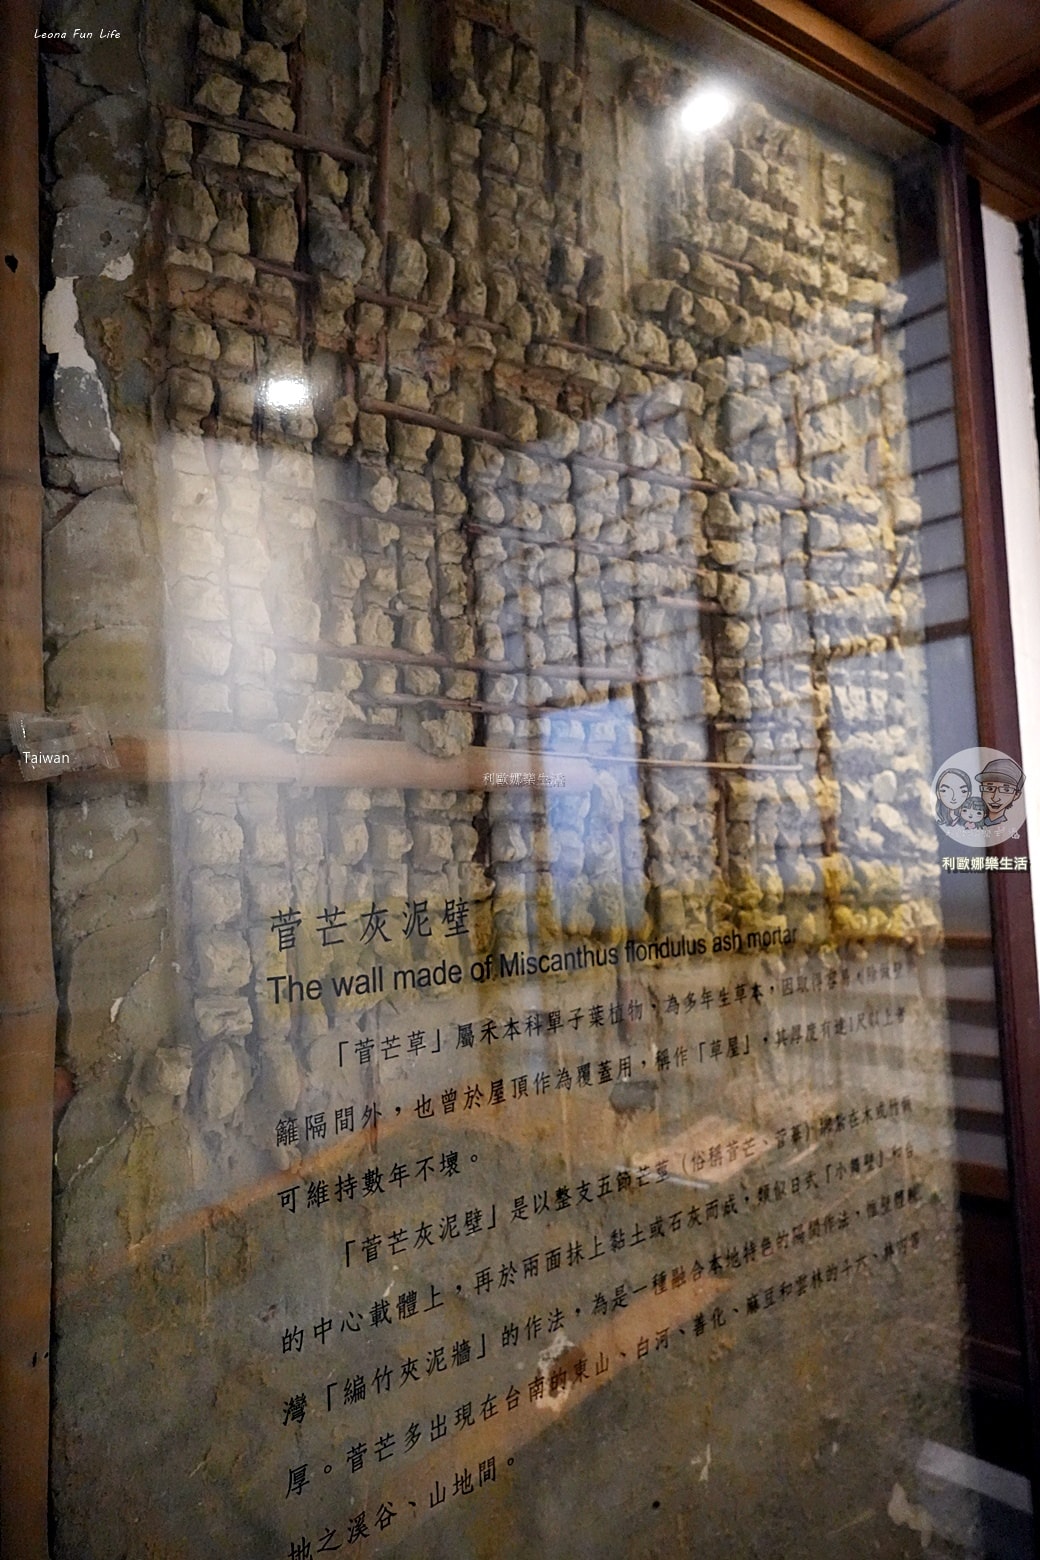 Leona Fun Life
Taiwan
利歐娜樂生活
利歐娜樂生活
菅芒灰泥壁
The wall made of Miscanthus floridulus ash mortar
「菅芒草」屬禾本科單子葉植物，為多年生草本，因取得容易，除做壁
籬隔間外，也曾於屋頂作為覆蓋用，稱作「草屋」，其厚度有達1尺以上者，
可維持數年不壞。
「菅芒灰泥壁」是以整支五節芒莖（俗稱菅芒、菅蓁）綁紮在木或竹
的中心載體上，再於兩面抹上黏土或石灰而成，類似日式「小舞壁」和台
灣「編竹夾泥牆」的作法，為是一種融合本地特色的隔間作法，惟壁體較
厚。菅芒多出現在台南的東山、白河、善化、麻豆和雲林的斗六、林內等
地之溪谷、山地間。